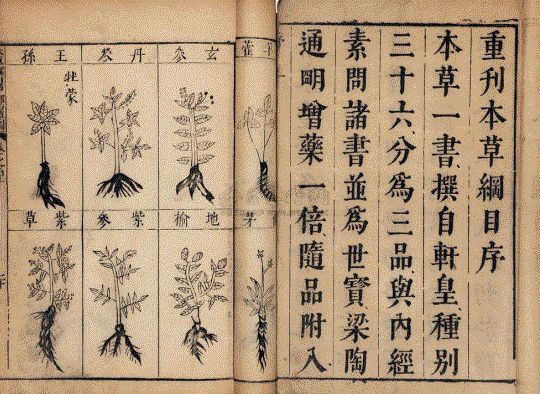 重刊本草綱目序
本草一書撰自軒皇種別
三十六分為三品與內經
素問諸書並為世寶梁陶
通明增藥一倍隨品附入
玄參
丹參
王孫
牡蒙
地榆
紫參
紫草